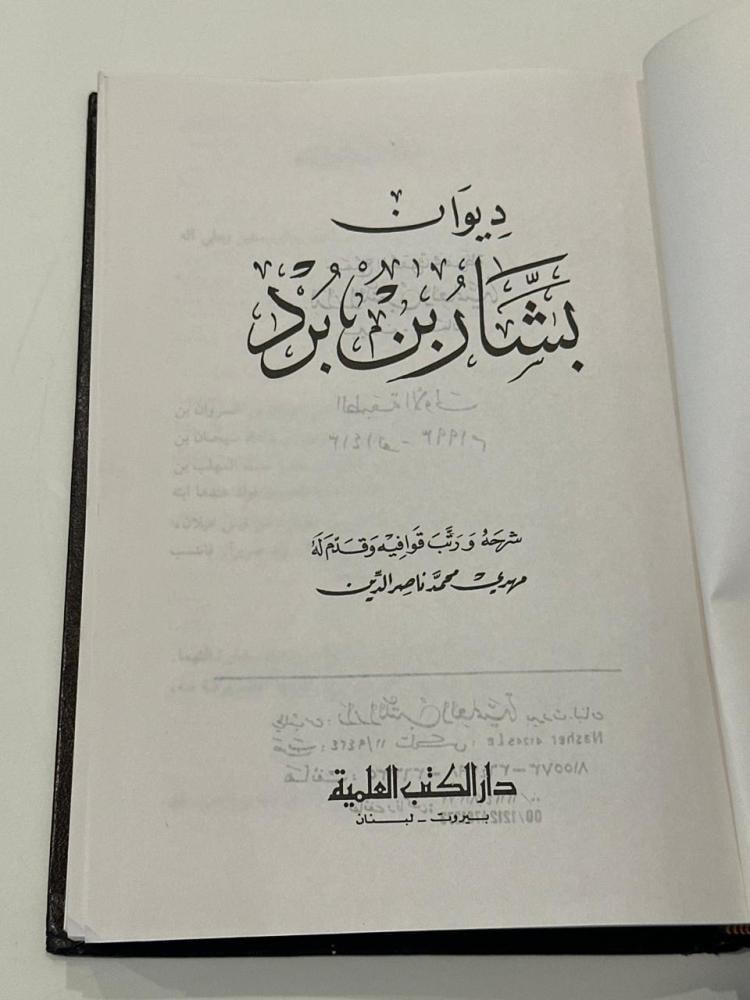 ديوَان
بَشَّار بُنْ بُرْد
شرحَهُ وَرَتَّبَ قوَافيِه وَقدّم لَهُ
مهدي محمّد ناصِر الدّين
دار الكتب العلمية
بيروت - لبنان